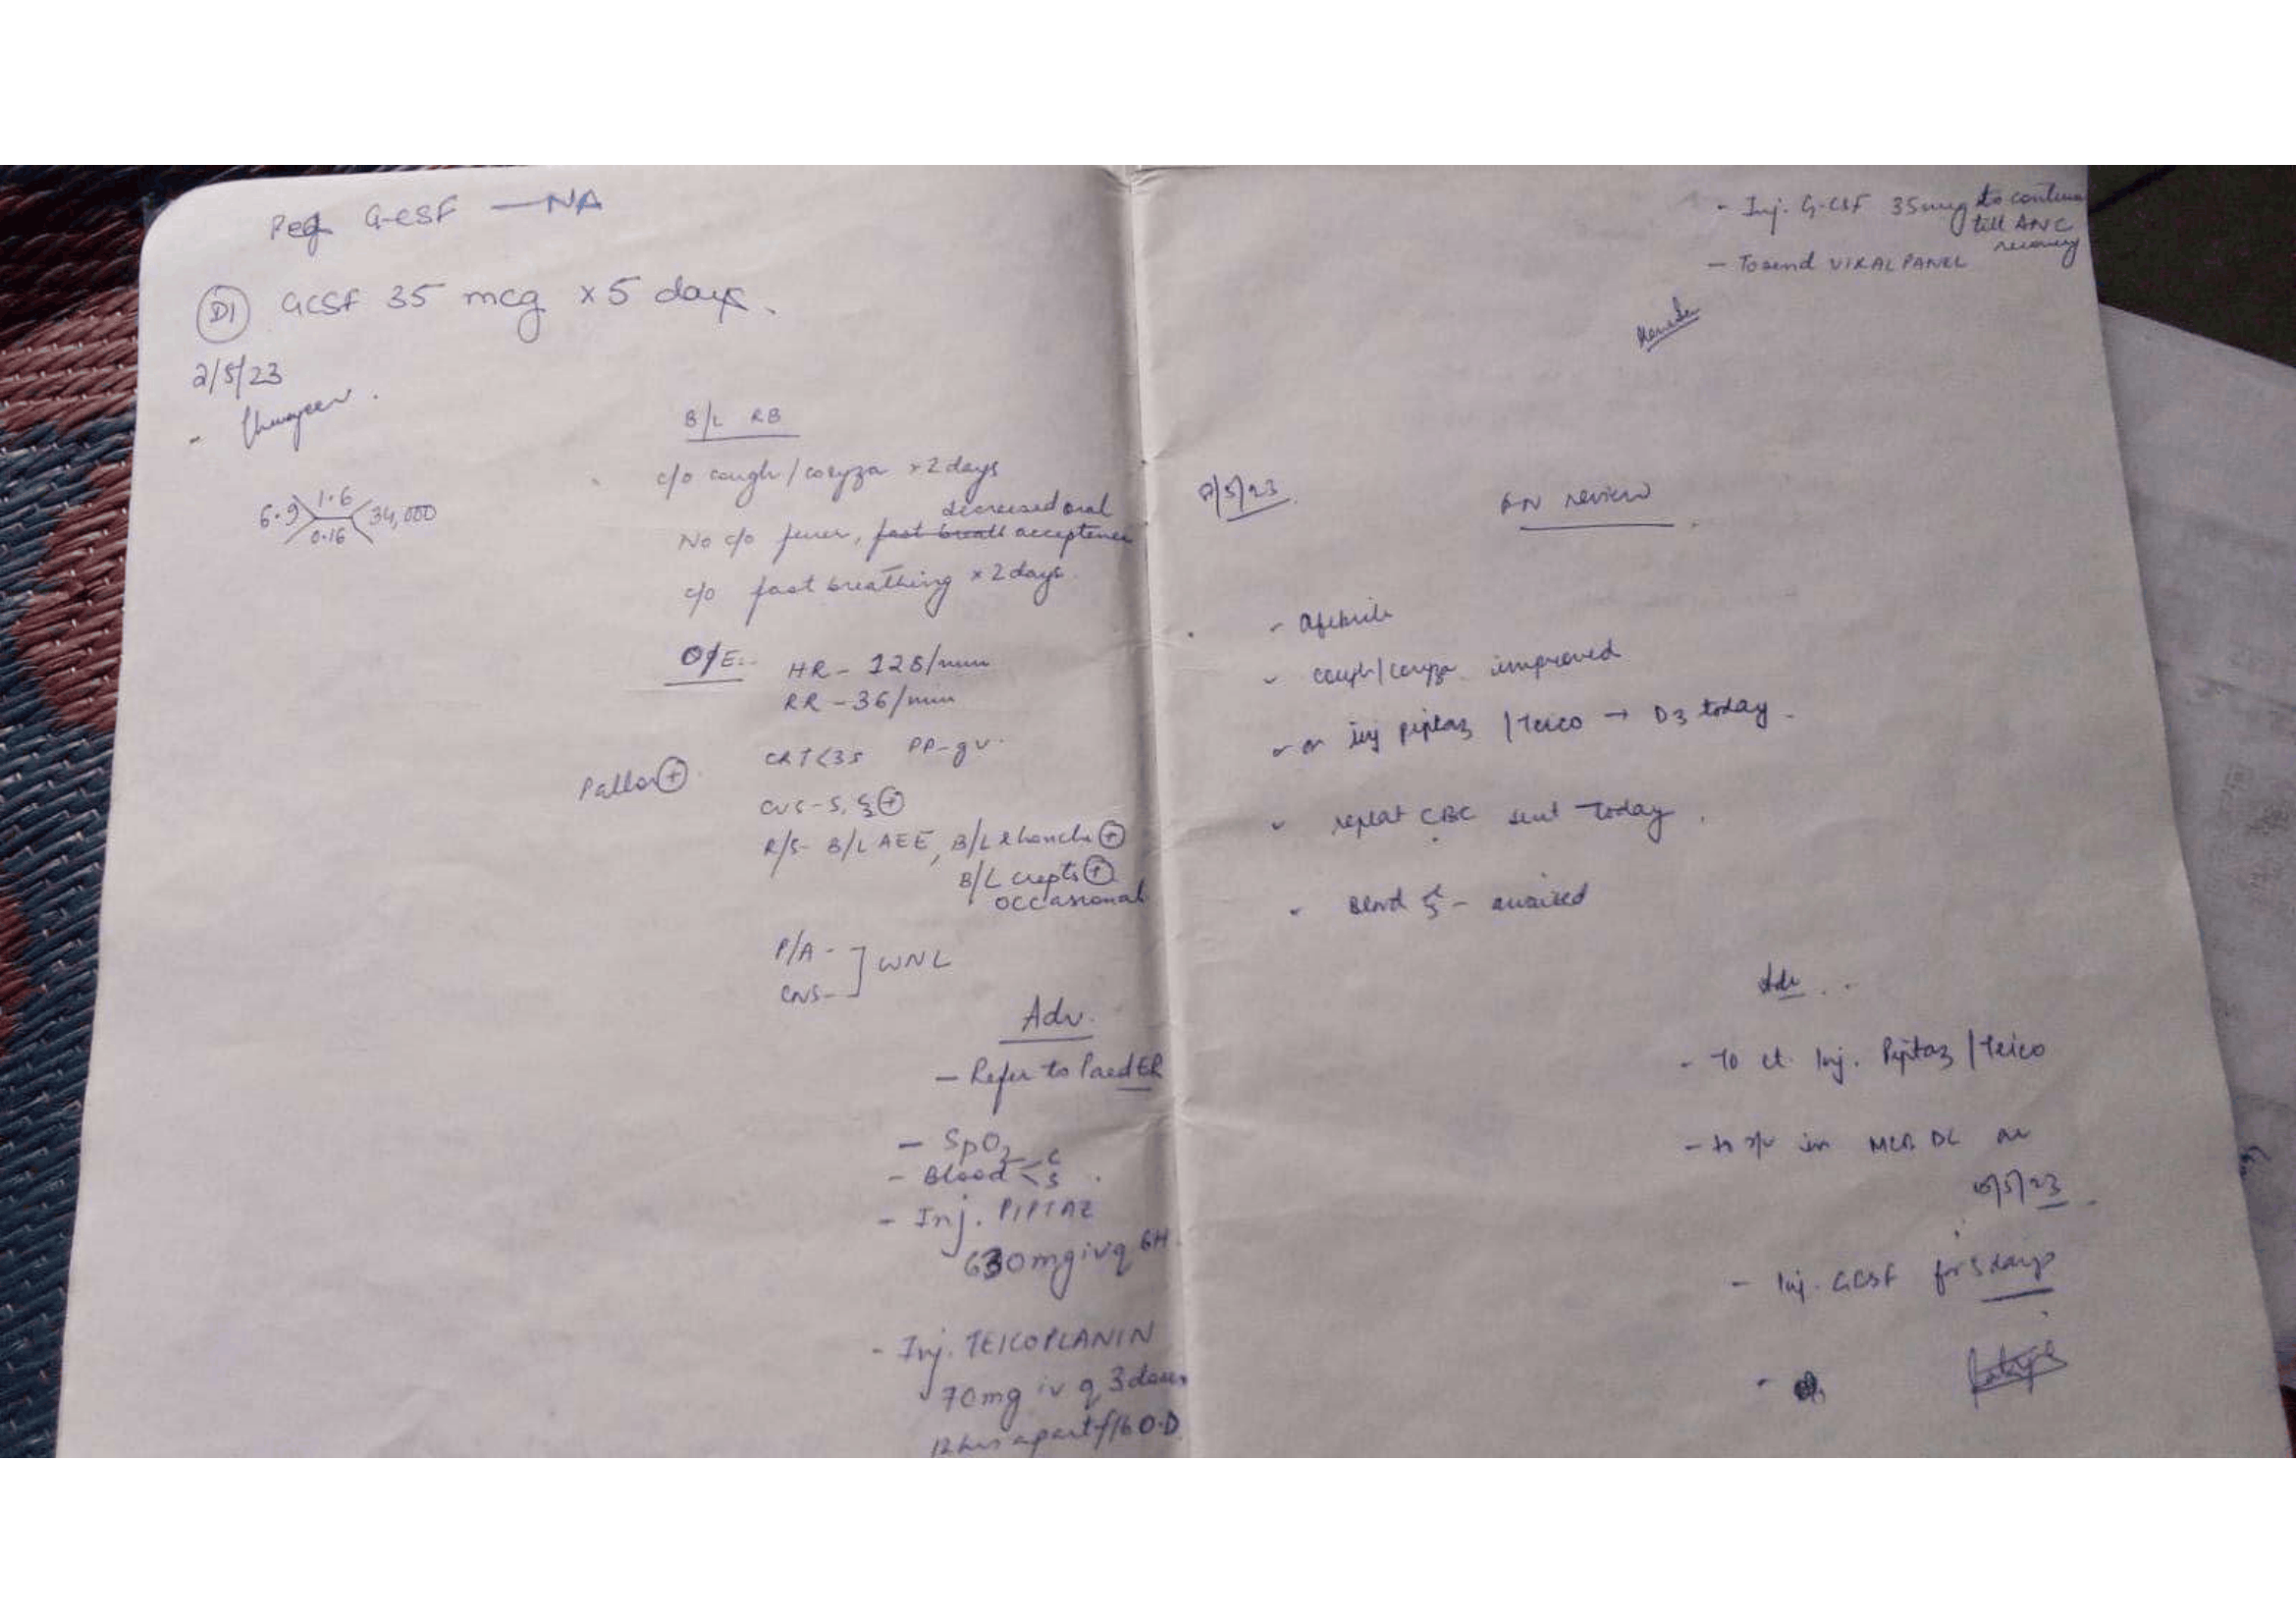 Peg G-CSF — NA
D1 GCSF 35 mcg x 5 days.
2/5/23
6.9 1.6 34,000
0.16
B/L RB
c/o cough / coryza x 2 days
decreased oral
No c/o fever, fast breath acceptance
c/o fast breathing x 2 days
O/E:- HR - 128/min
RR - 36/min
CRT<3s PP-gv.
Pallor +
CVS - S1 S2 +
R/S- B/L AEE, B/L Rhonchi +
B/L crepts +
occasional
P/A -
CNS- ] WNL
Adv.
- Refer to Paed ER
- SpO2
- Blood < C
S
- Inj. PIPTAZ
630mg iv q 6H
- Inj. TEICOPLANIN
70mg iv q 3 doses
12 hrs apart f/b O.D
- Inj. G-CSF 35mcg to continue
till ANC
recovery
- To send VIRAL PANEL
/5/23 review
- Afebrile
- cough/coryza improved
- on inj piptaz / Teico → D3 today.
- repeat CBC sent today.
- Blood C/S - awaited
Adv
- To ct. Inj. Piptaz / Teico
- to r/v in DC on
/5/23
- Inj. GCSF for 5 days